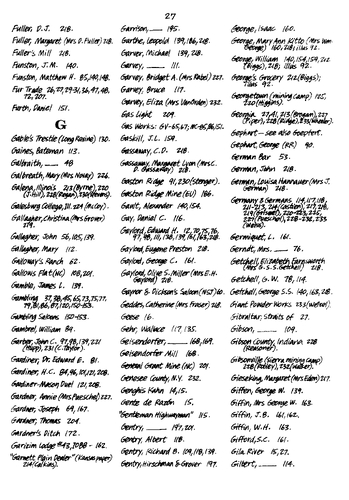 27
Fuller, D.J. 218.
Fuller, Margaret (Mrs D. Fuller) 218.
Fuller's Mill 218.
Funston, J.M. 140.
Funston, Matthew H. 85, 140, 148.
Fur Trade
Furth, Daniel 151.
G
Gable's Trestle (Long Ravine) 130.
Gaines, Bateman 113.
Galbraith, ____ 48
Galbreath, Mary (Mrs. Novay) 226.
Galena, Illinois
Galesburg College, Ill. 221
Gallagher, Christina (Mrs Grover) 219.
Gallagher, John 56, 105, 139.
Gallagher, Mary 112.
Galloway's Ranch 62.
Gallows Flat (NC) 108, 201.
Gamble, James L. 139.
Gambling
Gambling Saloons 150-153.
Gambrel, William 89.
Garber, John C. 97, 98, 139, 221
Gardiner, Dr. Edward E. 81.
Gardiner, H.C. 84, 96, 101, 121, 208.
Gardiner-Mason Duel 121, 208.
Gardner, Annie (Mrs Paeschle) 227.
Gardner, Joseph 69, 167.
Gardner, Thomas 204.
Gardner's Ditch 172.
Garizim Lodge #43, IOBB - 162.
"Garnett Plain Dealer" (Kansas paper) 214
Garrison, ____ 195.
Garthe, Leopold 139, 186, 218.
Garver, Michael 139, 218.
Garvey, ____ 111.
Garvey, Bridget A. (Mrs Rabel) 227.
Garvey, Bruce 117.
Garvey, Eliza (Mrs VanOrder) 232.
Gas Light 209.
Gas Works: GV-65, 67; NC-85, 86, 152.
Gaskill, J.L. 154.
Gassaway, C.D. 218.
Gassaway, Margaret Lyon (Mrs C. D. Gassaway) 218.
Gaston Ridge 91, 230
Gaston Ridge Mine (EU) 186.
Gault, Alexander 140, 154.
Gay, Daniel C. 116.
Gaylord, Edward H.
Gaylord, Eugene Preston 218.
Gaylord, George C. 161.
Gaylord, Olive S. Miller (Mrs E.H. Gaylord) 218.
Gaynor & Dickson's Saloon (1457) 60.
Geddes, Catherine (Mrs Fraser) 218.
Geese 16.
Gehr, Wallace 117, 135.
Geisendorfer, ____ 168, 169.
Geisendorfer Mill 168.
General Grant Mine (NC) 201.
Genesee County, N.Y. 232.
Genghis Kahn 14, 15.
Gente de Razón 15.
"Gentleman Highwayman" 115.
Gentry, ____ 197, 201.
Gentry, Albert 118.
Gentry, Richard B. 109, 118, 139.
Gentry, Hirschman & Grover 197.
George, Isaac 160.
George, Mary Ann Kitto (Mrs Wm. George) 160, 218; illus 92.
George, William 140, 154, 159, 212 (Biggs), 218; illus. 92.
George's Grocery 212 (Biggs); illus 92.
Georgetown (mining camp) 125, 220 (Higgins).
Georgia
Gephart - see also Goephart.
Gephart, George (RR) 90.
German Bar 53.
German, John 218.
German, Louisa Hannauer (Mrs J. German) 218.
Germany & Germans
Germiquet, L. 161.
Gerndt, Mrs. ____ 76.
Getchell, Elizabeth Farnsworth (Mrs G.S.S. Getchell) 218.
Getchell, G.W. 78, 114.
Getchell, George S.S. 140, 163, 218.
Giant Powder Works 233
Gibraltar, Straits of 27.
Gibson, ____ 109.
Gibson County, Indiana 228
Gibsonville (Sierra mining camp) 228
Gieseking, Margaret (Mrs Eden) 217.
Giffen, George W. 139.
Giffin, Mrs George W. 163.
Giffin, J.B. 161, 162.
Giffin, W.H. 163.
Gifford, S.C. 161.
Gila River 15, 27.
Gillert, ____ 114.